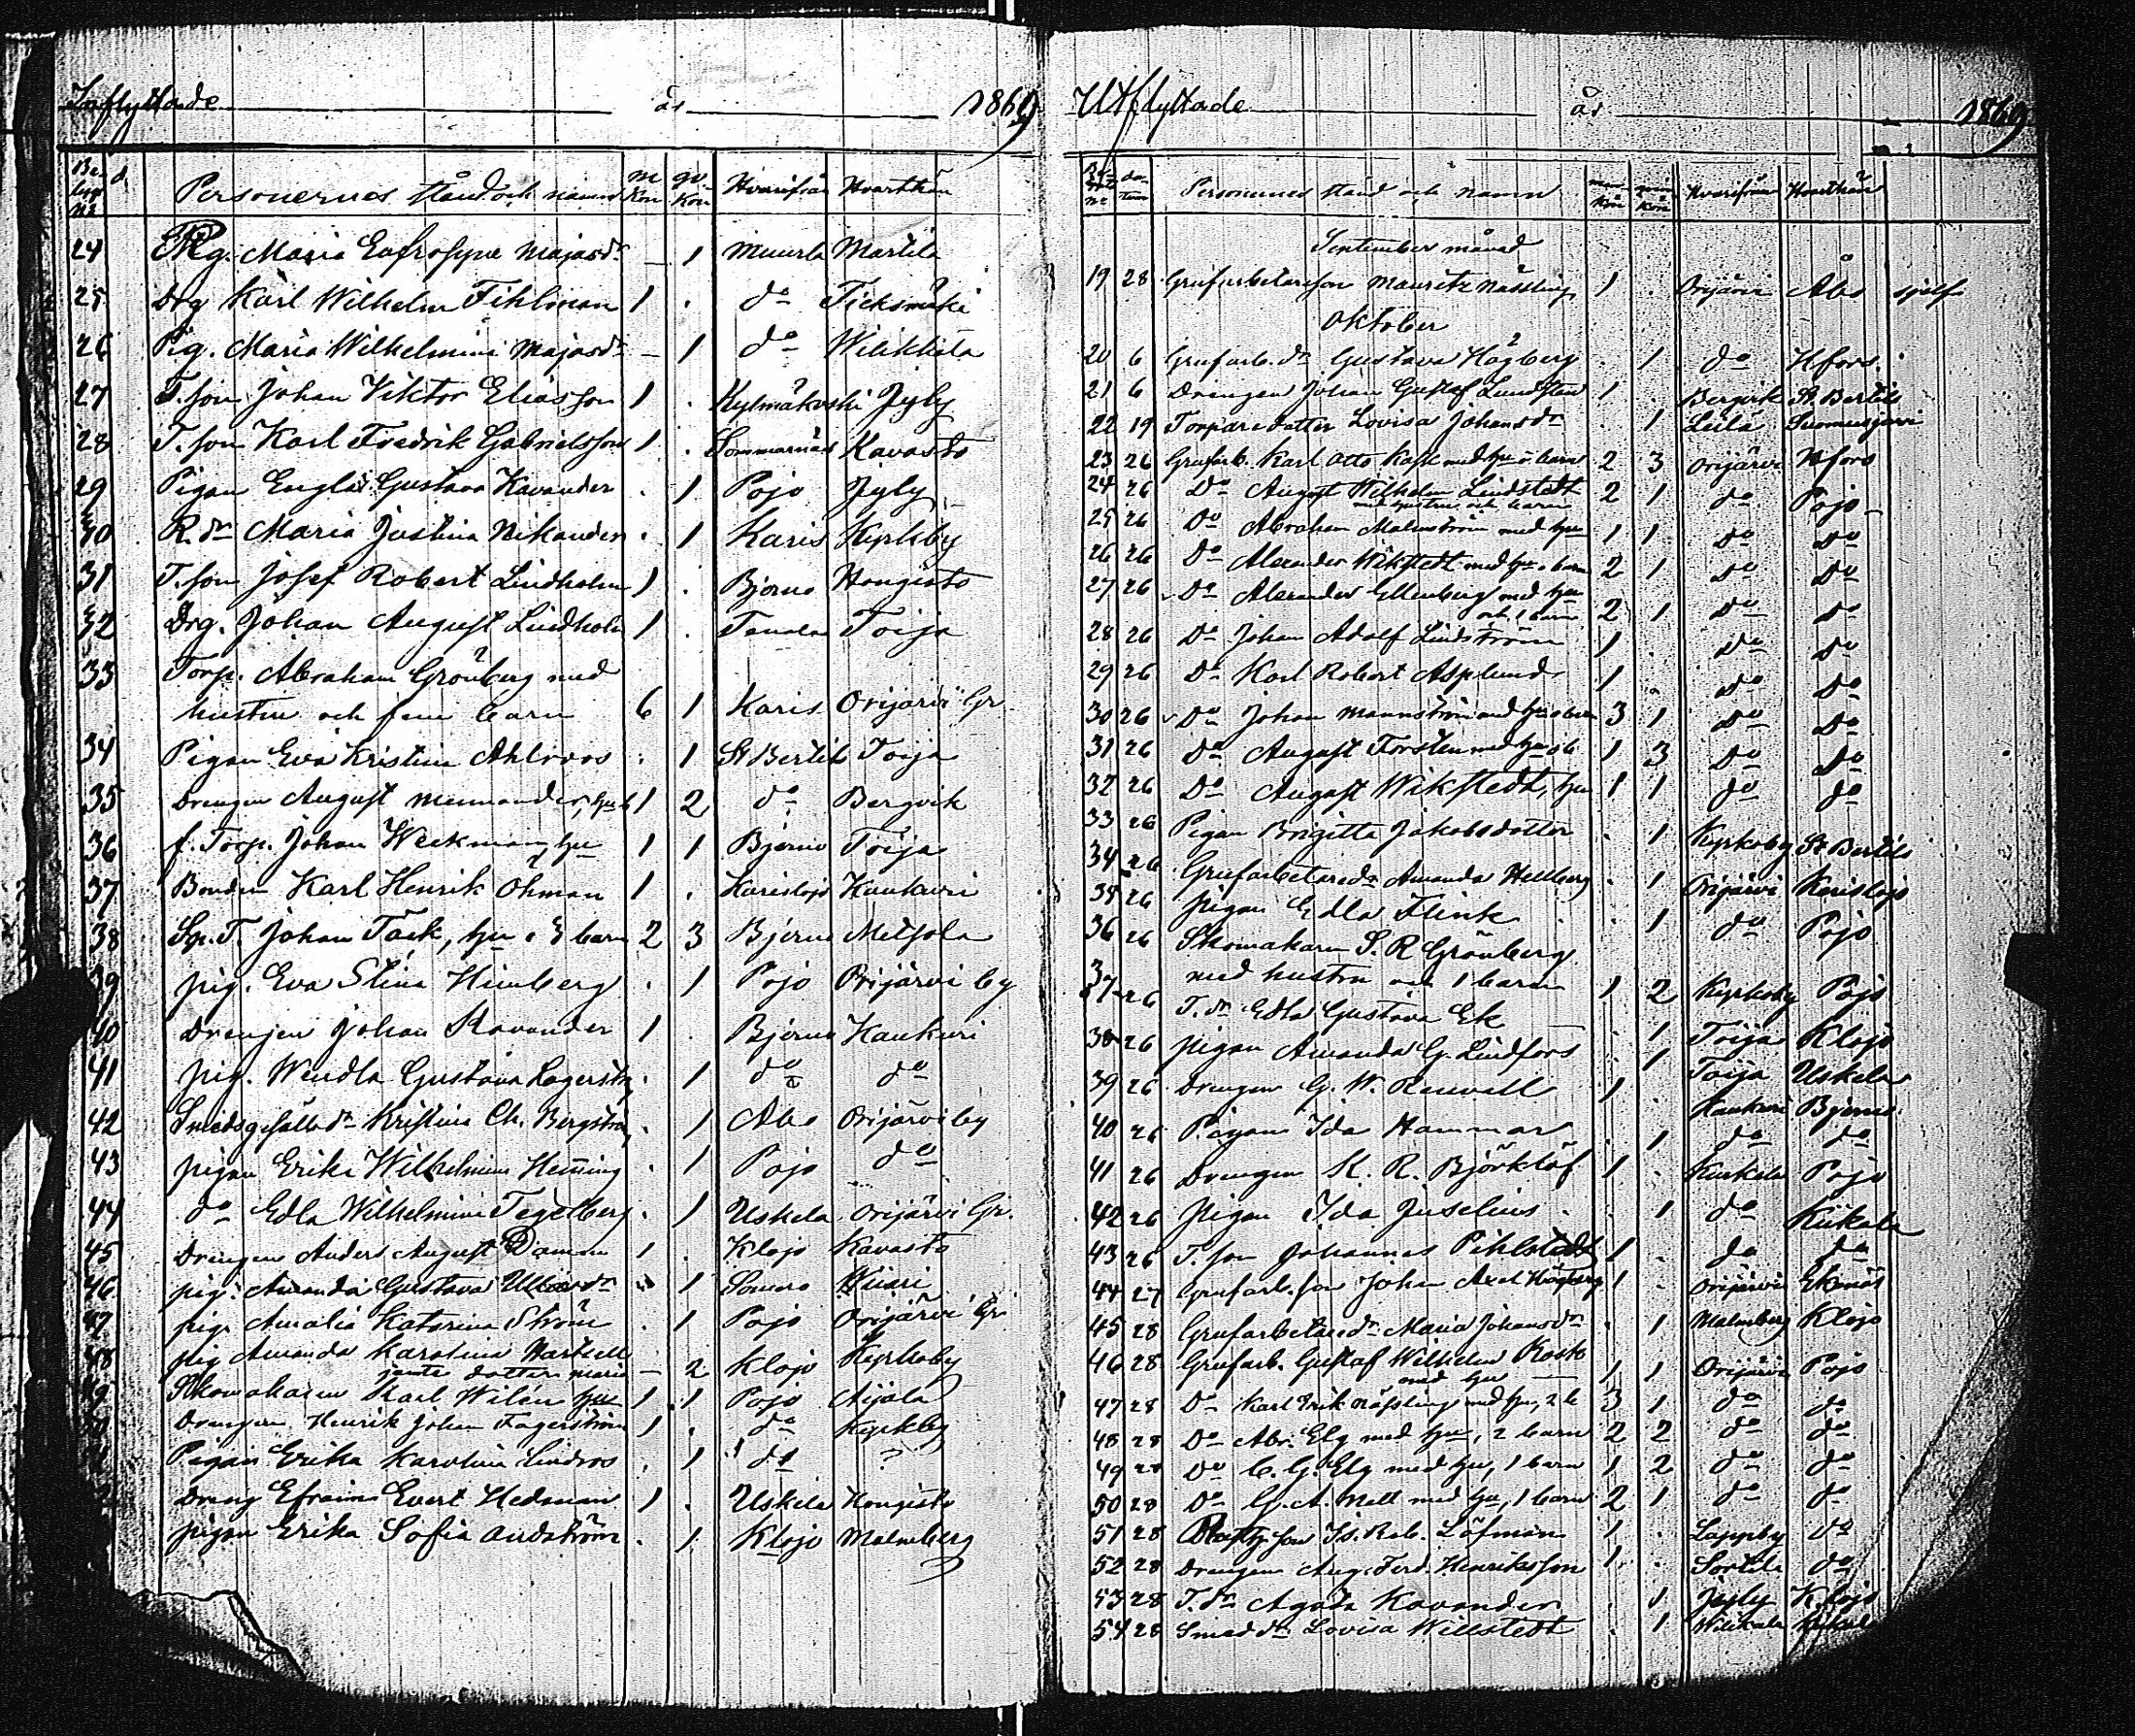 Inflyttade år 1869
Personernes stånd och namn m kön qv. kön Hvarifrån Hvarthän
24 Pig. Maria Eufrosyne Majasdr — 1 Muurla Martila
25 Drg Karl Wilhelm Fihlman 1 . do Ticksmäki
26 Pig. Maria Wilhelmina Majasdr — 1 do
27 T.son Johan Viktor Eliasson 1 . Jyly
28 T.son Karl Fredrik Gabrielsson 1 . Sommarnäs Kavasto
29 Pigan Engla Gustava Kavander . 1 Pojo Jyly
30 R.dr Maria Justina Nikander . 1 Karis Kyrkby
31 T.son Josef Robert Lindholm 1 . Bjerno Hongisto
32 Drg. Johan August Lindholm 1 . Tenala Toija
33 Torp. Abraham Grönberg med
hustru och fem barn 6 1 Karis Orijärvi Gr.
34 Pigan Eva Kristina Ahlroos . 1 St Bertils Toija
35 Drengen August 1 2 do Bergvik
36 f. Torp. Johan Weckman, hu 1 1 Bjerno Toija
37 Bonden Karl Henrik Öhman 1 . Karislojo Kaukuri
38 Sp.T. Johan Täck, hu o 3 barn 2 3 Bjerno Metsola
39 pig. Eva Stina Himberg . 1 Pojo Orijärvi by
40 Drengen Johan Ravander 1 . Bjerno Kaukuri
41 pig. Wendla Gustava . 1 do do
42 Smedsgesälls dr Kristina Ch. Bergström . 1 Åbo Orijärvi by
43 pigan Erika Wilhelmina Henning . 1 Pojo do
44 do Edla Wilhelmina Tegelberg . 1 Uskela Orijärvi Gr.
45 Drengen Anders August 1 . Klojo Kavasto
46 pig. Amanda Gustava 1 Somero Kiiari
47 pig. Amalia Katarina Ström . 1 Pojo Orijärvi Gr
48 pig Amanda Karolina
jemte dotter Maria — 2 Klojo Kyrkoby
49 Skomakaren Karl Wilén hu 1 1 Pojo Aijala
Drengen Henrik Johan Fagerström 1 . do Kyrkby
Pigan Erika Karolina Lindroos . 1 do ?
Dreng Efraim Evert Hedman 1 . Uskela Hongisto
pigan Erika Sofia Andström . 1 Klojo Malmberg
Utflyttade år 1869
datum Personernes stånd och namn man kön kön Hvarifrån Hvarthän
September månad
19 28 Grufarbetareson Mauritz Näsling 1 . Orijärvi Åbo
Oktober
20 6 Grufarb. dr Gustava Högberg . 1 do Hfors.
21 6 Drengen Johan Gustaf Lundsten 1 . Bergvik St. Bertils
22 19 Torpare dotter Lovisa Johansdr . 1 Leilä Suomusjärvi
23 26 Grufarb. Karl Otto Kask med hu o barn 2 3 Orijärvi Hfors
24 26 Do August Wilhelm Lindstedt 2 1 do Pojo
med hustru och barn
25 26 Do Abraham Malmström med hu 1 1 Do Do
26 26 Do Alexander Wikstedt med hu o barn 2 1 Do Do
27 26 Do Alexander Ellenberg med hu
och 1 barn 2 1 Do Do
28 26 Do Johan Adolf Lindström 1 . Do Do
29 26 Do Karl Robert Asplund 1 . Do Do
30 26 Do Johan Mannström med hu o barn 3 1 Do Do
31 26 Do August Forstén med hu o b 1 3 Do Do
32 26 Do August Wikstedt, hu 1 1 do do
33 26 Pigan Brigitta Jakobsdotter . 1 Kyrkoby St Bertils
34 26 Grufarbetaredr Amanda Hellberg . 1 Orijärvi Karislojo
35 26 Pigan Edla Flink . 1 do Pojo
36 26 Skomakaren S. R Grönberg
med hustru och 1 barn 1 2 Kyrkoby Pojo
37 26 T.dr Edla Gustava Ek . 1 Toija Klojo
38 26 pigan Amanda G. Lindfors . 1 Toija Uskela
39 26 Drengen G. W. Renvall 1 . Kaukuri Bjerno
40 26 Pigan Ida Hammar . 1 do do
41 26 Drengen K. R. Björklöf 1 . Kiukala Pojo
42 26 Pigan Ida Juselius . 1 do Kiikala
43 26 T.son Johannes Pihlstedt 1 . do do
44 27 Grufarb. son Johan Axel Högberg 1 . Orijärvi Ekenäs
45 28 Grufarbetaredr Maria Johansdr . 1 Malmberg Klojo
46 28 Grufarb. Gustaf Wilhelm Rosk
med hu 1 1 Orijärvi Pojo
47 28 Do Karl Erik Näfsling med hu, 2 b 3 1 do do
48 28 Do Abr. Elg med hu, 2 barn 2 2 do do
49 28 Do C. G. Elg med hu, 1 barn 1 2 do do
50 28 Do G. A. Mell med hu, 1 barn 2 1 do do
51 28 son Is. Rob. Löfman 1 . Lappby do
52 28 Drengen Aug. Ferd. Henriksson 1 . Sorttila do
53 28 T.dr Agata Kavander . 1 Jyly Klojo
54 28 Smed dr Lovisa Willstedt . 1